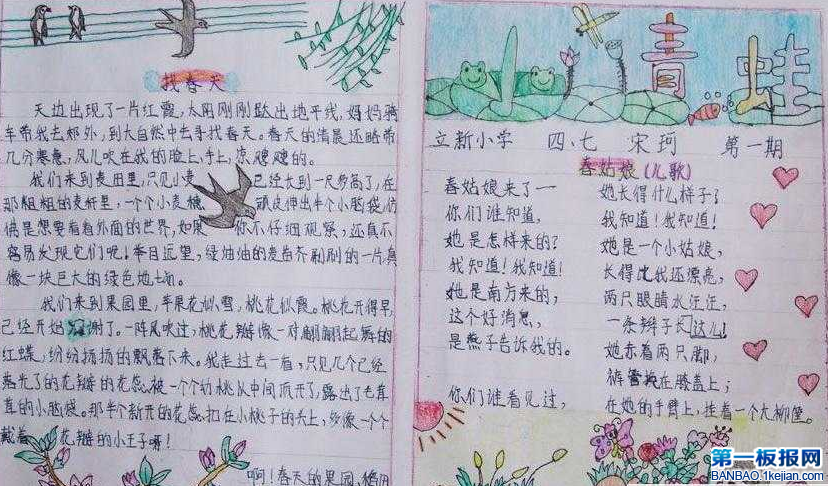 找春天
天边出现了一片红霞，太阳刚刚跃出地平线，妈妈骑
车带我去郊外，到大自然中去寻找春天。春天的清晨还略带
几分寒意，风儿吹在我的脸上，手上，凉飕飕的。
我们来到麦田里，只见小麦已经长到一尺多高了，在
那粗粗的麦秆里，一个个小麦穗顽皮伸出半个小脑袋，仿
佛是想要看看外面的世界，如果你不仔细观察，还真不
容易发现它们呢！举目远望，绿油油的麦苗齐刷刷的一片真
像一块巨大的绿色地
我们来到果园里，苹果花似雪，桃花似霞。桃花开得早，
已经开始谢了。一阵风吹过，桃花瓣像一对翩翩起舞的
红蝶，纷纷扬扬的飘落下来。我走过去一看，只见几个已经
落光了的花瓣的花蕊被一个个幼桃从中间顶开了，露出了毛茸
茸的小脑袋。那半个新开的花蕊扣在小桃子的头上，多像一个个
戴着花瓣的小王子呀！
啊！春天的果园，
青蛙
立新小学 四、七 宋珂 第一期
春姑娘（儿歌）
春姑娘来了一
你们谁知道，
她是怎样来的？
我知道！我知道！
她是南方来的，
这个好消息，
是燕子告诉我的。
你们谁看见过，
她长得什么样子？
我知道！我知道！
她是一个小姑娘，
长得比我还漂亮，
两只眼睛水汪汪，
一条辫子长这儿！
她赤着两只脚，
裤管挽在膝盖上；
在她的手臂上，挂着一个大柳筐。
第一板报网
BANBAO.1kejian.com